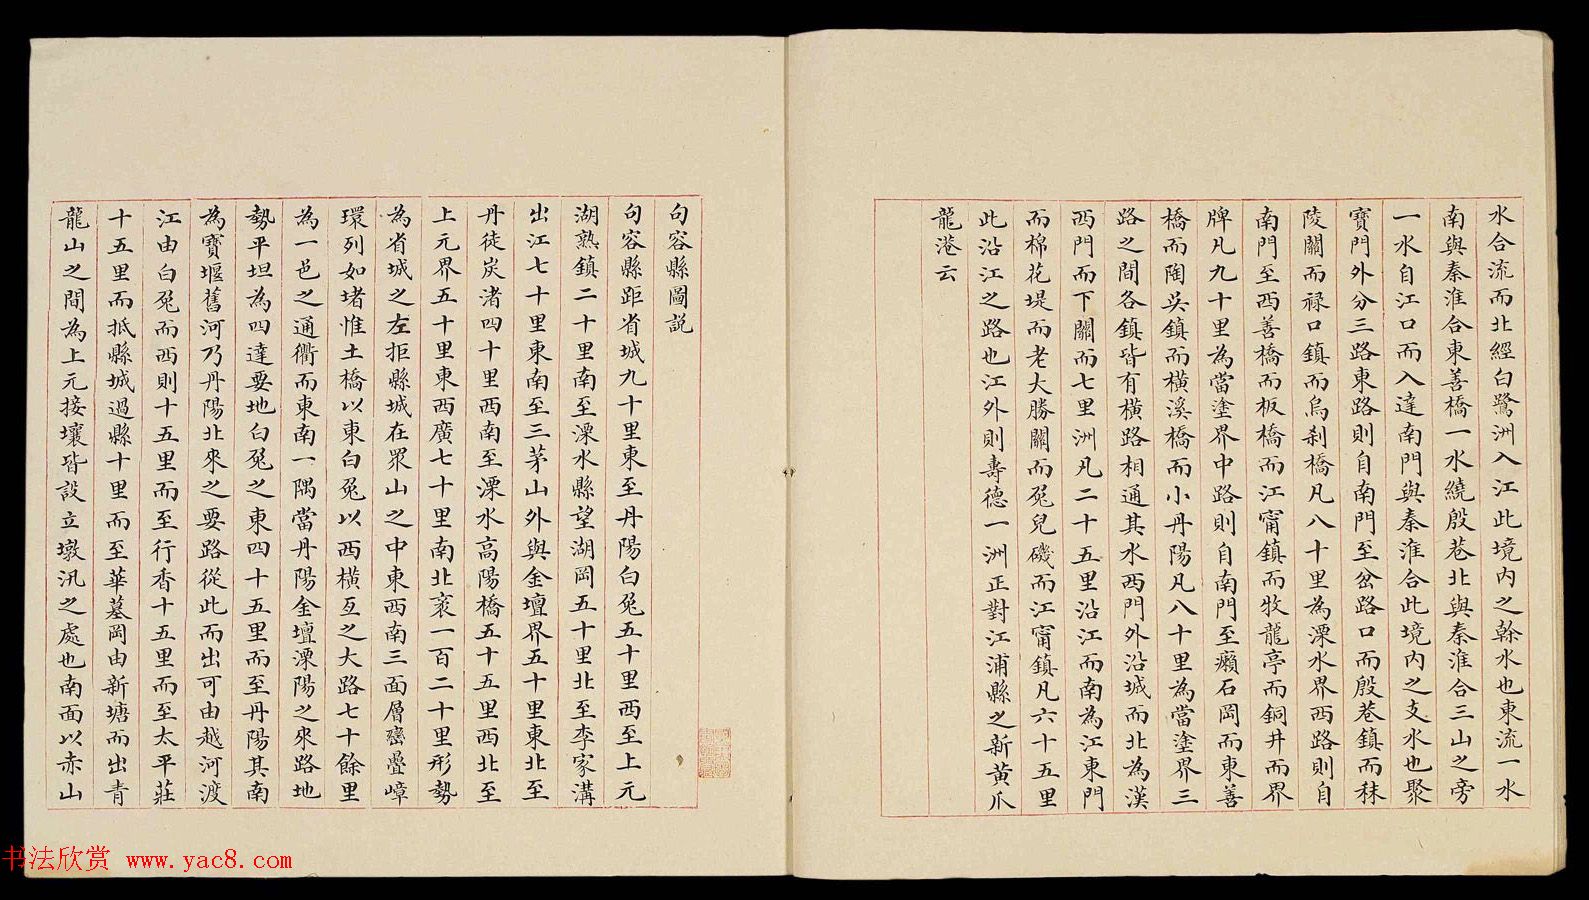 水合流而北經白鷺洲入江此境内之幹水也東流一水
南與秦淮合東善橋一水繞殷巷北與秦淮合三山之旁
一水自江口而入達南門與秦淮合此境内之支水也聚
寶門外分三路東路則自南門至岔路口而殷巷鎮而秣
陵關而祿口鎮而烏刹橋凡八十里為溧水界西路則自
南門至西善橋而板橋而江甯鎮而牧龍亭而銅井而界
牌凡九十里為當塗界中路則自南門至癩石岡而東善
橋而陶吳鎮而橫溪橋而小丹陽凡八十里為當塗界三
路之間各鎮皆有橫路相通其水西門外沿城而北為漢
西門而下關而七里洲凡二十五里沿江而南為江東門
而棉花堤而老大勝關而兔兒磯而江甯鎮凡六十五里
此沿江之路也江外則壽德一洲正對江浦縣之新黃爪
龍港云
句容縣圖説
句容縣距省城九十里東至丹陽白兔五十里西至上元
湖熟鎮二十里南至溧水縣望湖岡五十里北至李家溝
出江七十里東南至三茅山外與金壇界五十里東北至
丹徒炭渚四十里西南至溧水高陽橋五十五里西北至
上元界五十里東西廣七十里南北袤一百二十里形勢
為省城之左拒縣城在眾山之中東西南三面層巒疊嶂
環列如堵惟土橋以東白兔以西橫亙之大路七十餘里
為一邑之通衢而東南一隅當丹陽金壇溧陽之來路地
勢平坦為四達要地白兔之東四十五里而至丹陽其南
為寶堰舊河乃丹陽北來之要路從此而出可由越河渡
江由白兔而西則十五里而至行香十五里而至太平莊
十五里而抵縣城過縣十里而至華墓岡由新塘而出青
龍山之間為上元接壤皆設立墩汛之處也南面以赤山
书法欣赏 www.yac8.com